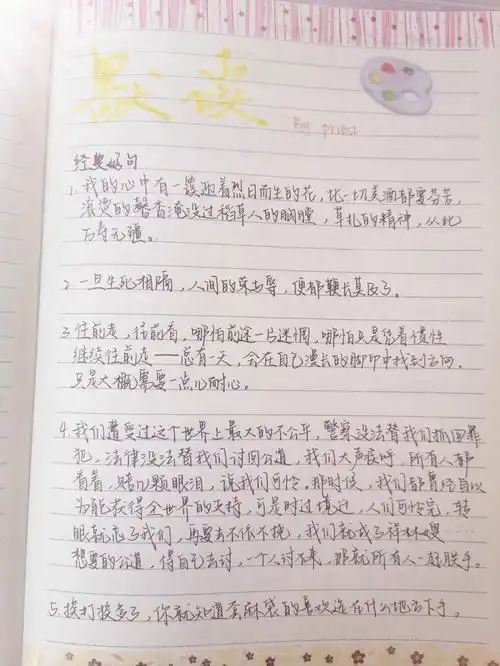 默读
By priest
经典好句
1. 我的心中有一簇迎着烈日而生的花，比一切美酒都要芬芳，
滚烫的馨香淹没过稻草人的胸膛，草扎的精神，从此
万寿无疆。
2. 一旦生死相隔，人间的荣与辱，便都鞭长莫及了。
3. 往前走，往前看，哪怕前途一片迷惘，哪怕只是凭着惯性
继续往前走——总有一天，会在自己漫长的脚印中找到方向。
只是大概需要一点儿耐心。
4. 我们遭受过这个世界上最大的不公平，警察没法替我们抓回罪
犯，法律没法替我们讨回公道，我们大声疾呼，所有人都
看着，赔几颗眼泪，说我们可怜，那时候，我们都曾经自以
为能获得全世界的支持，可是时过境迁，人们可怜完，转
眼就忘了我们，再要去不依不挠，我们就成了祥林嫂……
想要的公道，得自己去讨，一个人讨不来，那就所有人一起联手。
5. 挨打挨多了，你就知道套麻袋的喜欢选在什么地方下手。